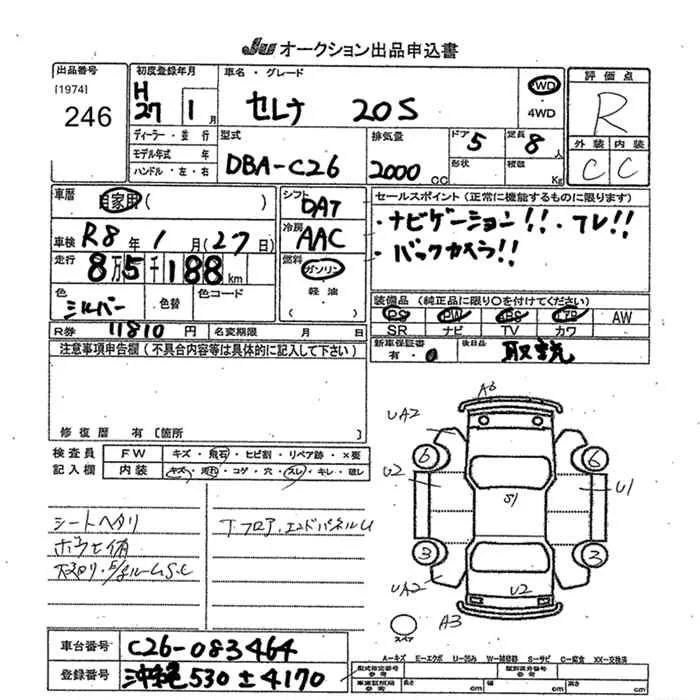 JU オークション出品申込書
出品番号
[1974]
246
初度登録年月
H
27 年 1 月
車名・グレード
セレナ 20S
2WD
4WD
評価点
R
外装 内装
C C
ディーラー・並行
モデル年式 年
ハンドル・左・右
型式
DBA-C26
排気量
2000 CC
ドア 5
形状
定員 8 人
積載 Kg
車歴
自家用 ( )
車検 R8 年 1 月 (27 日)
走行 8万5千188 km
色 シルバー
色替
色コード
シフト
DAT
冷房
AAC
燃料
ガソリン
軽油
( )
セールスポイント (正常に機能するものに限ります)
・ナビゲーション!!・フレ!!
・バックカメラ!!
装備品 (純正品に限り○を付けてください)
PS PW ABS エアB AW
SR ナビ TV カワ
新車保証書
有・
後日品
取説
R券 11810 円
名変期限 月 日
注意事項申告欄 (不具合内容等は具体的に記入して下さい)
修復歴 有 〔箇所
検査員
記入欄
FW キズ・飛石・ヒビ割・リペア跡・×要
内装 キズ・汚れ・コゲ・穴・スレ・キレ・破レ
シートヘタリ
下フロア.エンドパネルU
A3
UA2
UA2
6
6
U2
U1
S1
3
3
UA2
A2
U2
A3
スペア
車台番号 C26-083464
登録番号 沖縄 530 ま 4170
A―キズ E―エクボ U―凹み W―補修跡 S―サビ C―腐食 XX―交換済
型式指定番号
参考
類別区分番号
参考
長さ cm
幅 cm
高さ cm